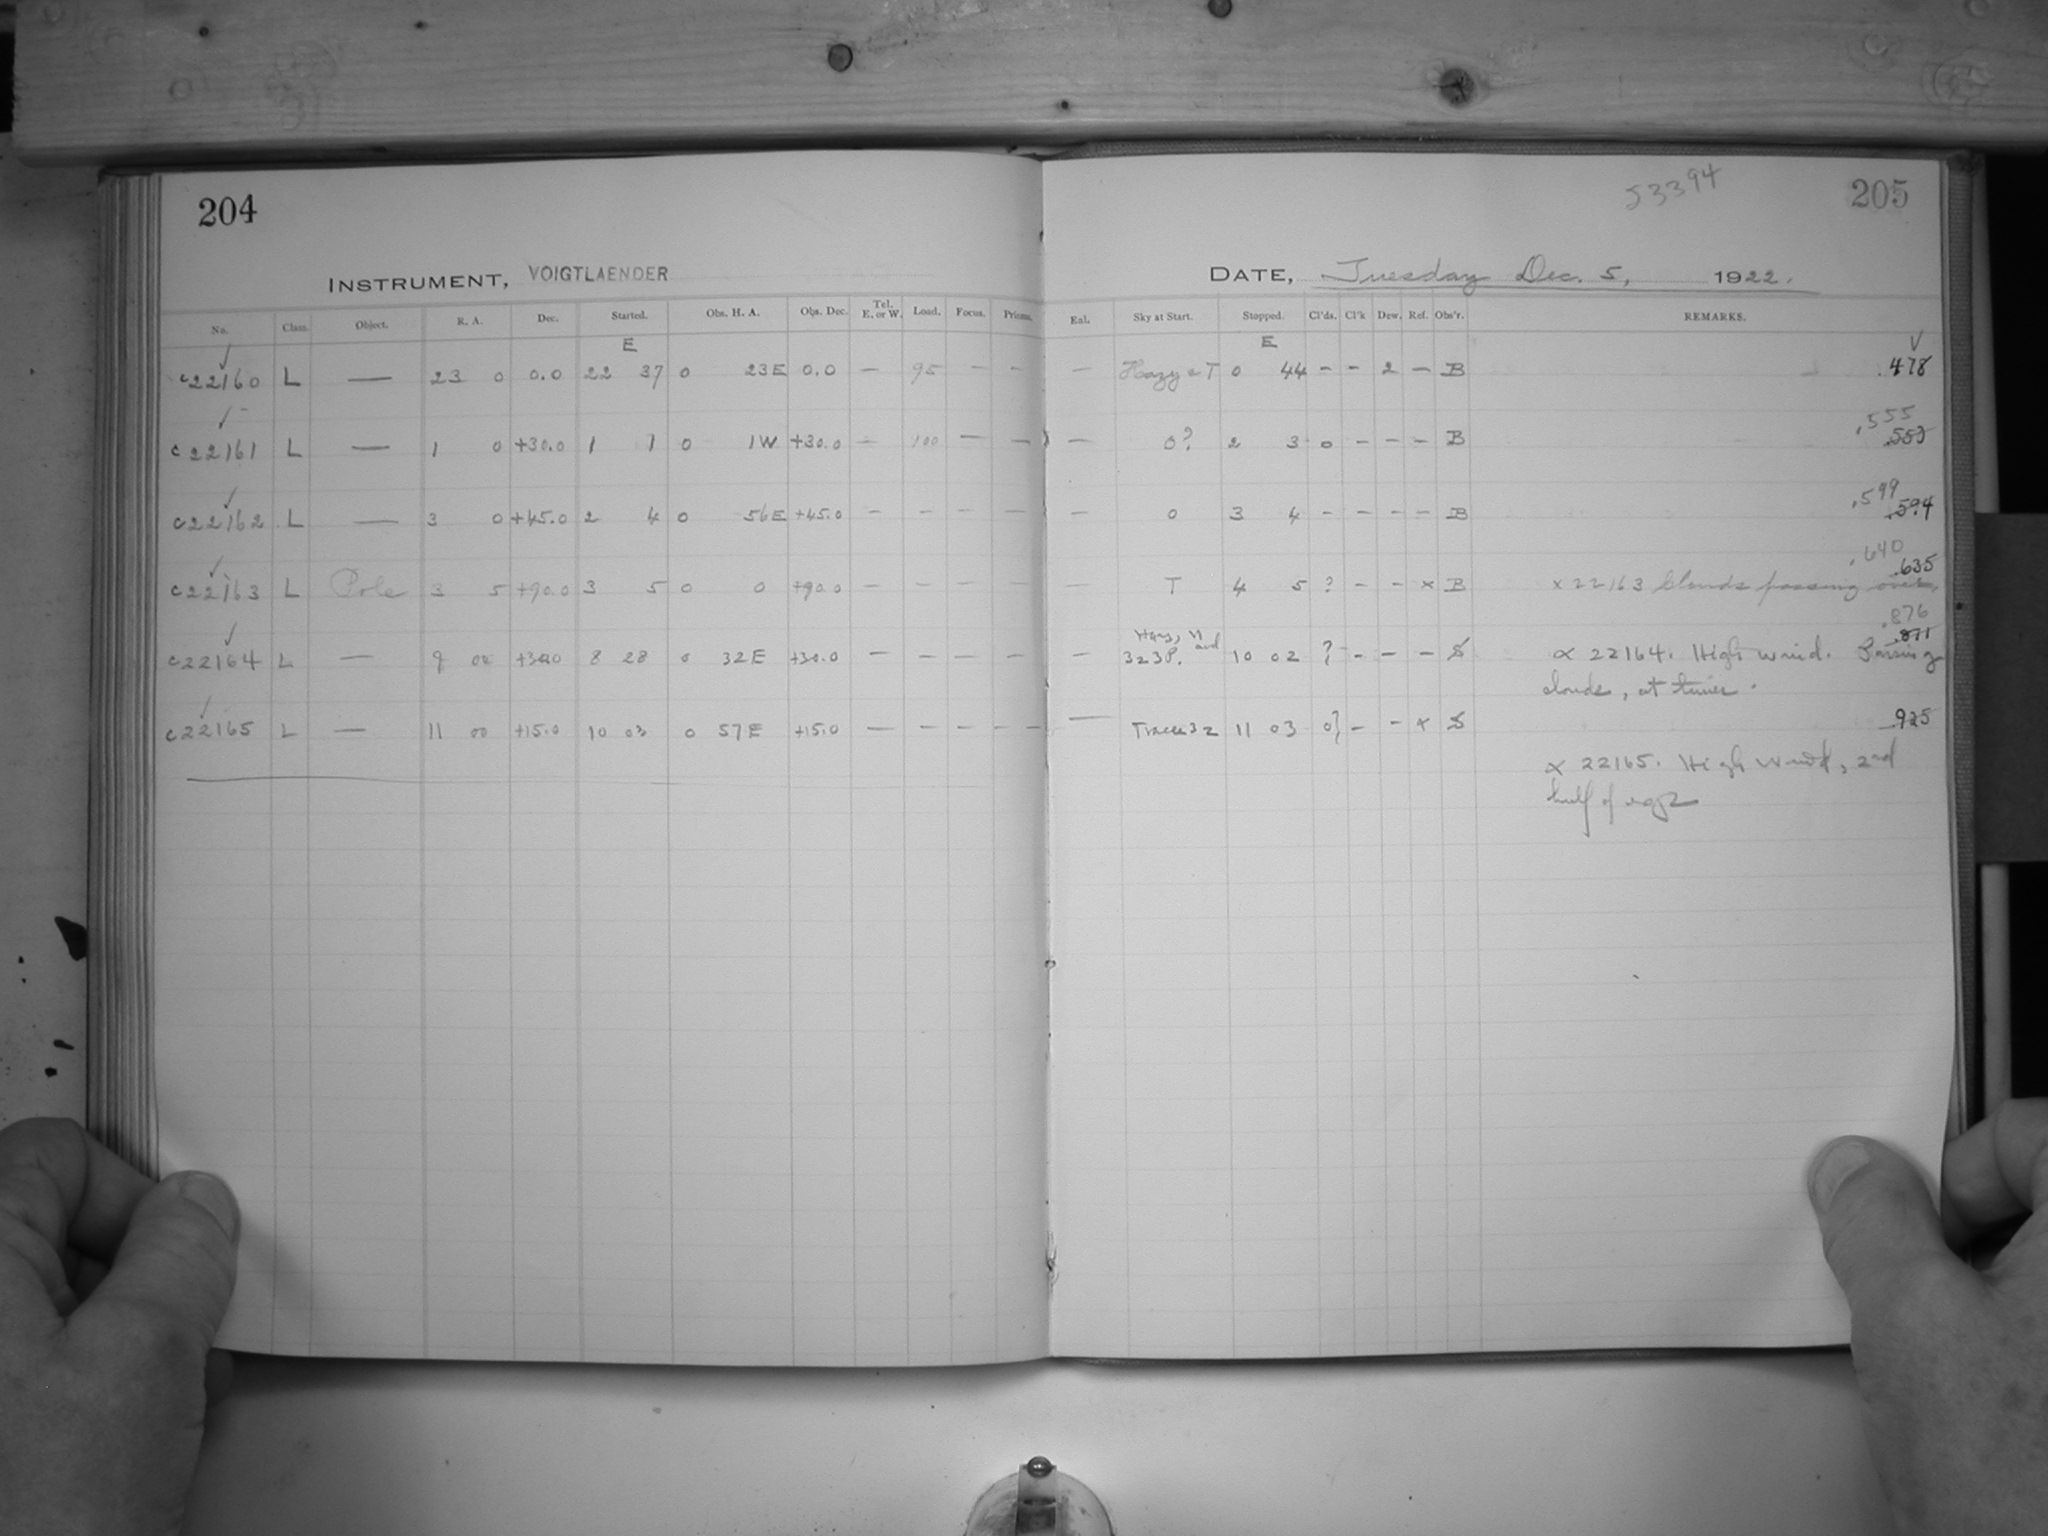 204
53394
205
INSTRUMENT, VOIGTLAENDER
DATE, Tuesday Dec. 5, 1922.
No. Class. Object. R. A. Dec. Started. Obs. H. A. Obs. Dec. Tel. E. or W. Load. Focus. Prisms. Eal. Sky at Start. Stopped. Cl'ds. Cl'k Dew. Ref. Obs'r. REMARKS.
E E √
c22160 L — 23 0 0.0 22 37 0 23E 0.0 — 95 — — — Hazy & T 0 44 - - 2 — B .478
.555
c22161 L — 1 0 +30.0 1 1 0 1W +30.0 — 100 — — — 0? 2 3 0 - - - B .553
.599
c22162 L — 3 0 +45.0 2 4 0 56E +45.0 — — — — — 0 3 4 - - - - B .594
.640
.635
c22163 L Pole 3 5 +90.0 3 5 0 0 +90.0 — — — — — T 4 5 ? - - x B x 22163 Clouds passing over.
.876
.871
c22164 L — 9 00 +30.0 8 28 0 32E +30.0 — — — — — 323P. 10 02 ? - - - S x 22164. High wind. Passing
clouds, at times.
c22165 L — 11 00 +15.0 10 03 0 57E +15.0 — — — — — Traces 32 11 03 0? - - x S .925
x 22165. High wind, 2nd
half of